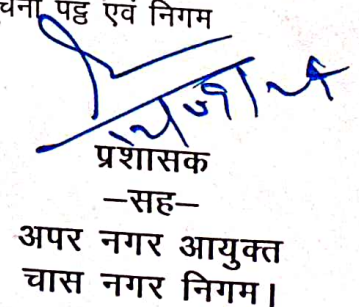 चना पट्ट एवं निगम
प्रशासक
–सह–
अपर नगर आयुक्त
चास नगर निगम।